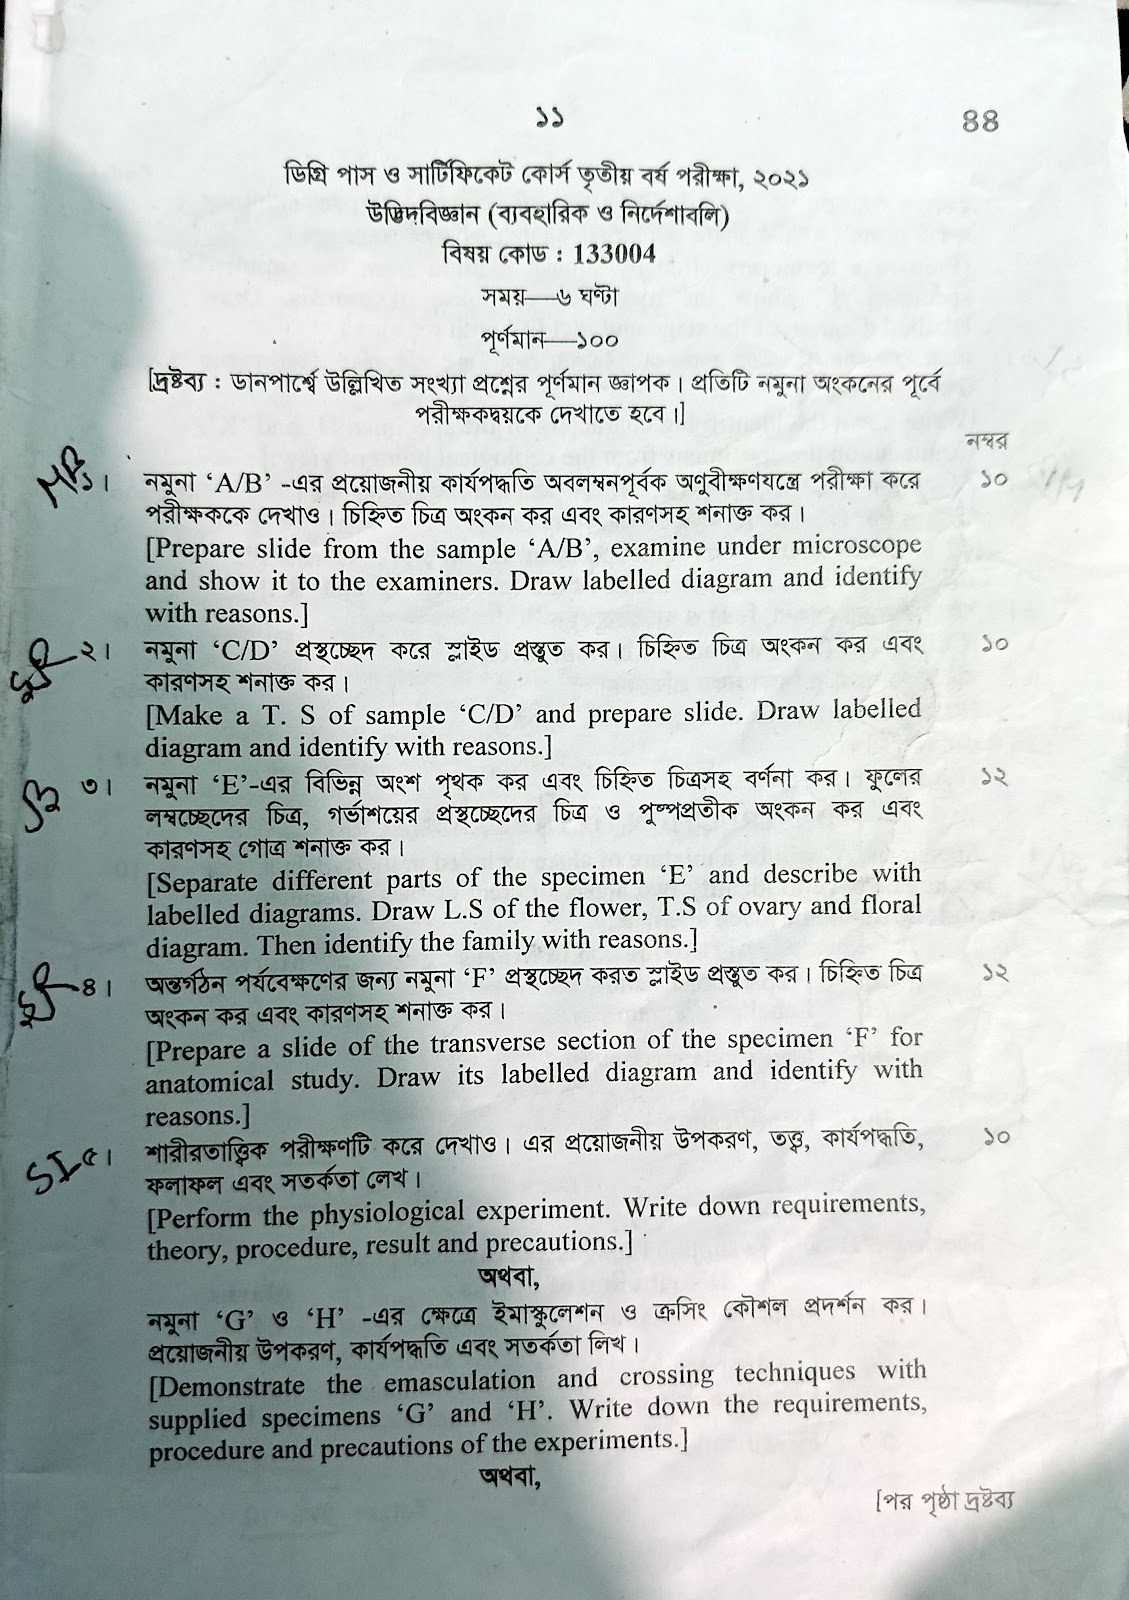 ১১
88
ডিগ্রি পাস ও সার্টিফিকেট কোর্স তৃতীয় বর্ষ পরীক্ষা, ২০২১
উদ্ভিদবিজ্ঞান (ব্যবহারিক ও নির্দেশাবলি)
বিষয় কোড : 133004
সময়—৬ ঘণ্টা
পূর্ণমান—১০০
[দ্রষ্টব্য : ডানপার্শ্বে উল্লিখিত সংখ্যা প্রশ্নের পূর্ণমান জ্ঞাপক। প্রতিটি নমুনা অংকনের পূর্বে
পরীক্ষকদ্বয়কে দেখাতে হবে।]
নম্বর
১। নমুনা ‘A/B’ -এর প্রয়োজনীয় কার্যপদ্ধতি অবলম্বনপূর্বক অণুবীক্ষণযন্ত্রে পরীক্ষা করে ১০
পরীক্ষককে দেখাও। চিহ্নিত চিত্র অংকন কর এবং কারণসহ শনাক্ত কর।
[Prepare slide from the sample ‘A/B’, examine under microscope
and show it to the examiners. Draw labelled diagram and identify
with reasons.]
২। নমুনা ‘C/D’ প্রস্থচ্ছেদ করে স্লাইড প্রস্তুত কর। চিহ্নিত চিত্র অংকন কর এবং ১০
কারণসহ শনাক্ত কর।
[Make a T. S of sample ‘C/D’ and prepare slide. Draw labelled
diagram and identify with reasons.]
৩। নমুনা ‘E’-এর বিভিন্ন অংশ পৃথক কর এবং চিহ্নিত চিত্রসহ বর্ণনা কর। ফুলের ১২
লম্বচ্ছেদের চিত্র, গর্ভাশয়ের প্রস্থচ্ছেদের চিত্র ও পুষ্পপ্রতীক অংকন কর এবং
কারণসহ গোত্র শনাক্ত কর।
[Separate different parts of the specimen ‘E’ and describe with
labelled diagrams. Draw L.S of the flower, T.S of ovary and floral
diagram. Then identify the family with reasons.]
৪। অন্তর্গঠন পর্যবেক্ষণের জন্য নমুনা ‘F’ প্রস্থচ্ছেদ করত স্লাইড প্রস্তুত কর। চিহ্নিত চিত্র ১২
অংকন কর এবং কারণসহ শনাক্ত কর।
[Prepare a slide of the transverse section of the specimen ‘F’ for
anatomical study. Draw its labelled diagram and identify with
reasons.]
৫। শারীরতাত্ত্বিক পরীক্ষণটি করে দেখাও। এর প্রয়োজনীয় উপকরণ, তত্ত্ব, কার্যপদ্ধতি, ১০
ফলাফল এবং সতর্কতা লেখ।
[Perform the physiological experiment. Write down requirements,
theory, procedure, result and precautions.]
অথবা,
নমুনা ‘G’ ও ‘H’ -এর ক্ষেত্রে ইমাস্কুলেশন ও ক্রসিং কৌশল প্রদর্শন কর।
প্রয়োজনীয় উপকরণ, কার্যপদ্ধতি এবং সতর্কতা লিখ।
[Demonstrate the emasculation and crossing techniques with
supplied specimens ‘G’ and ‘H’. Write down the requirements,
procedure and precautions of the experiments.]
অথবা,
[পর পৃষ্ঠা দ্রষ্টব্য